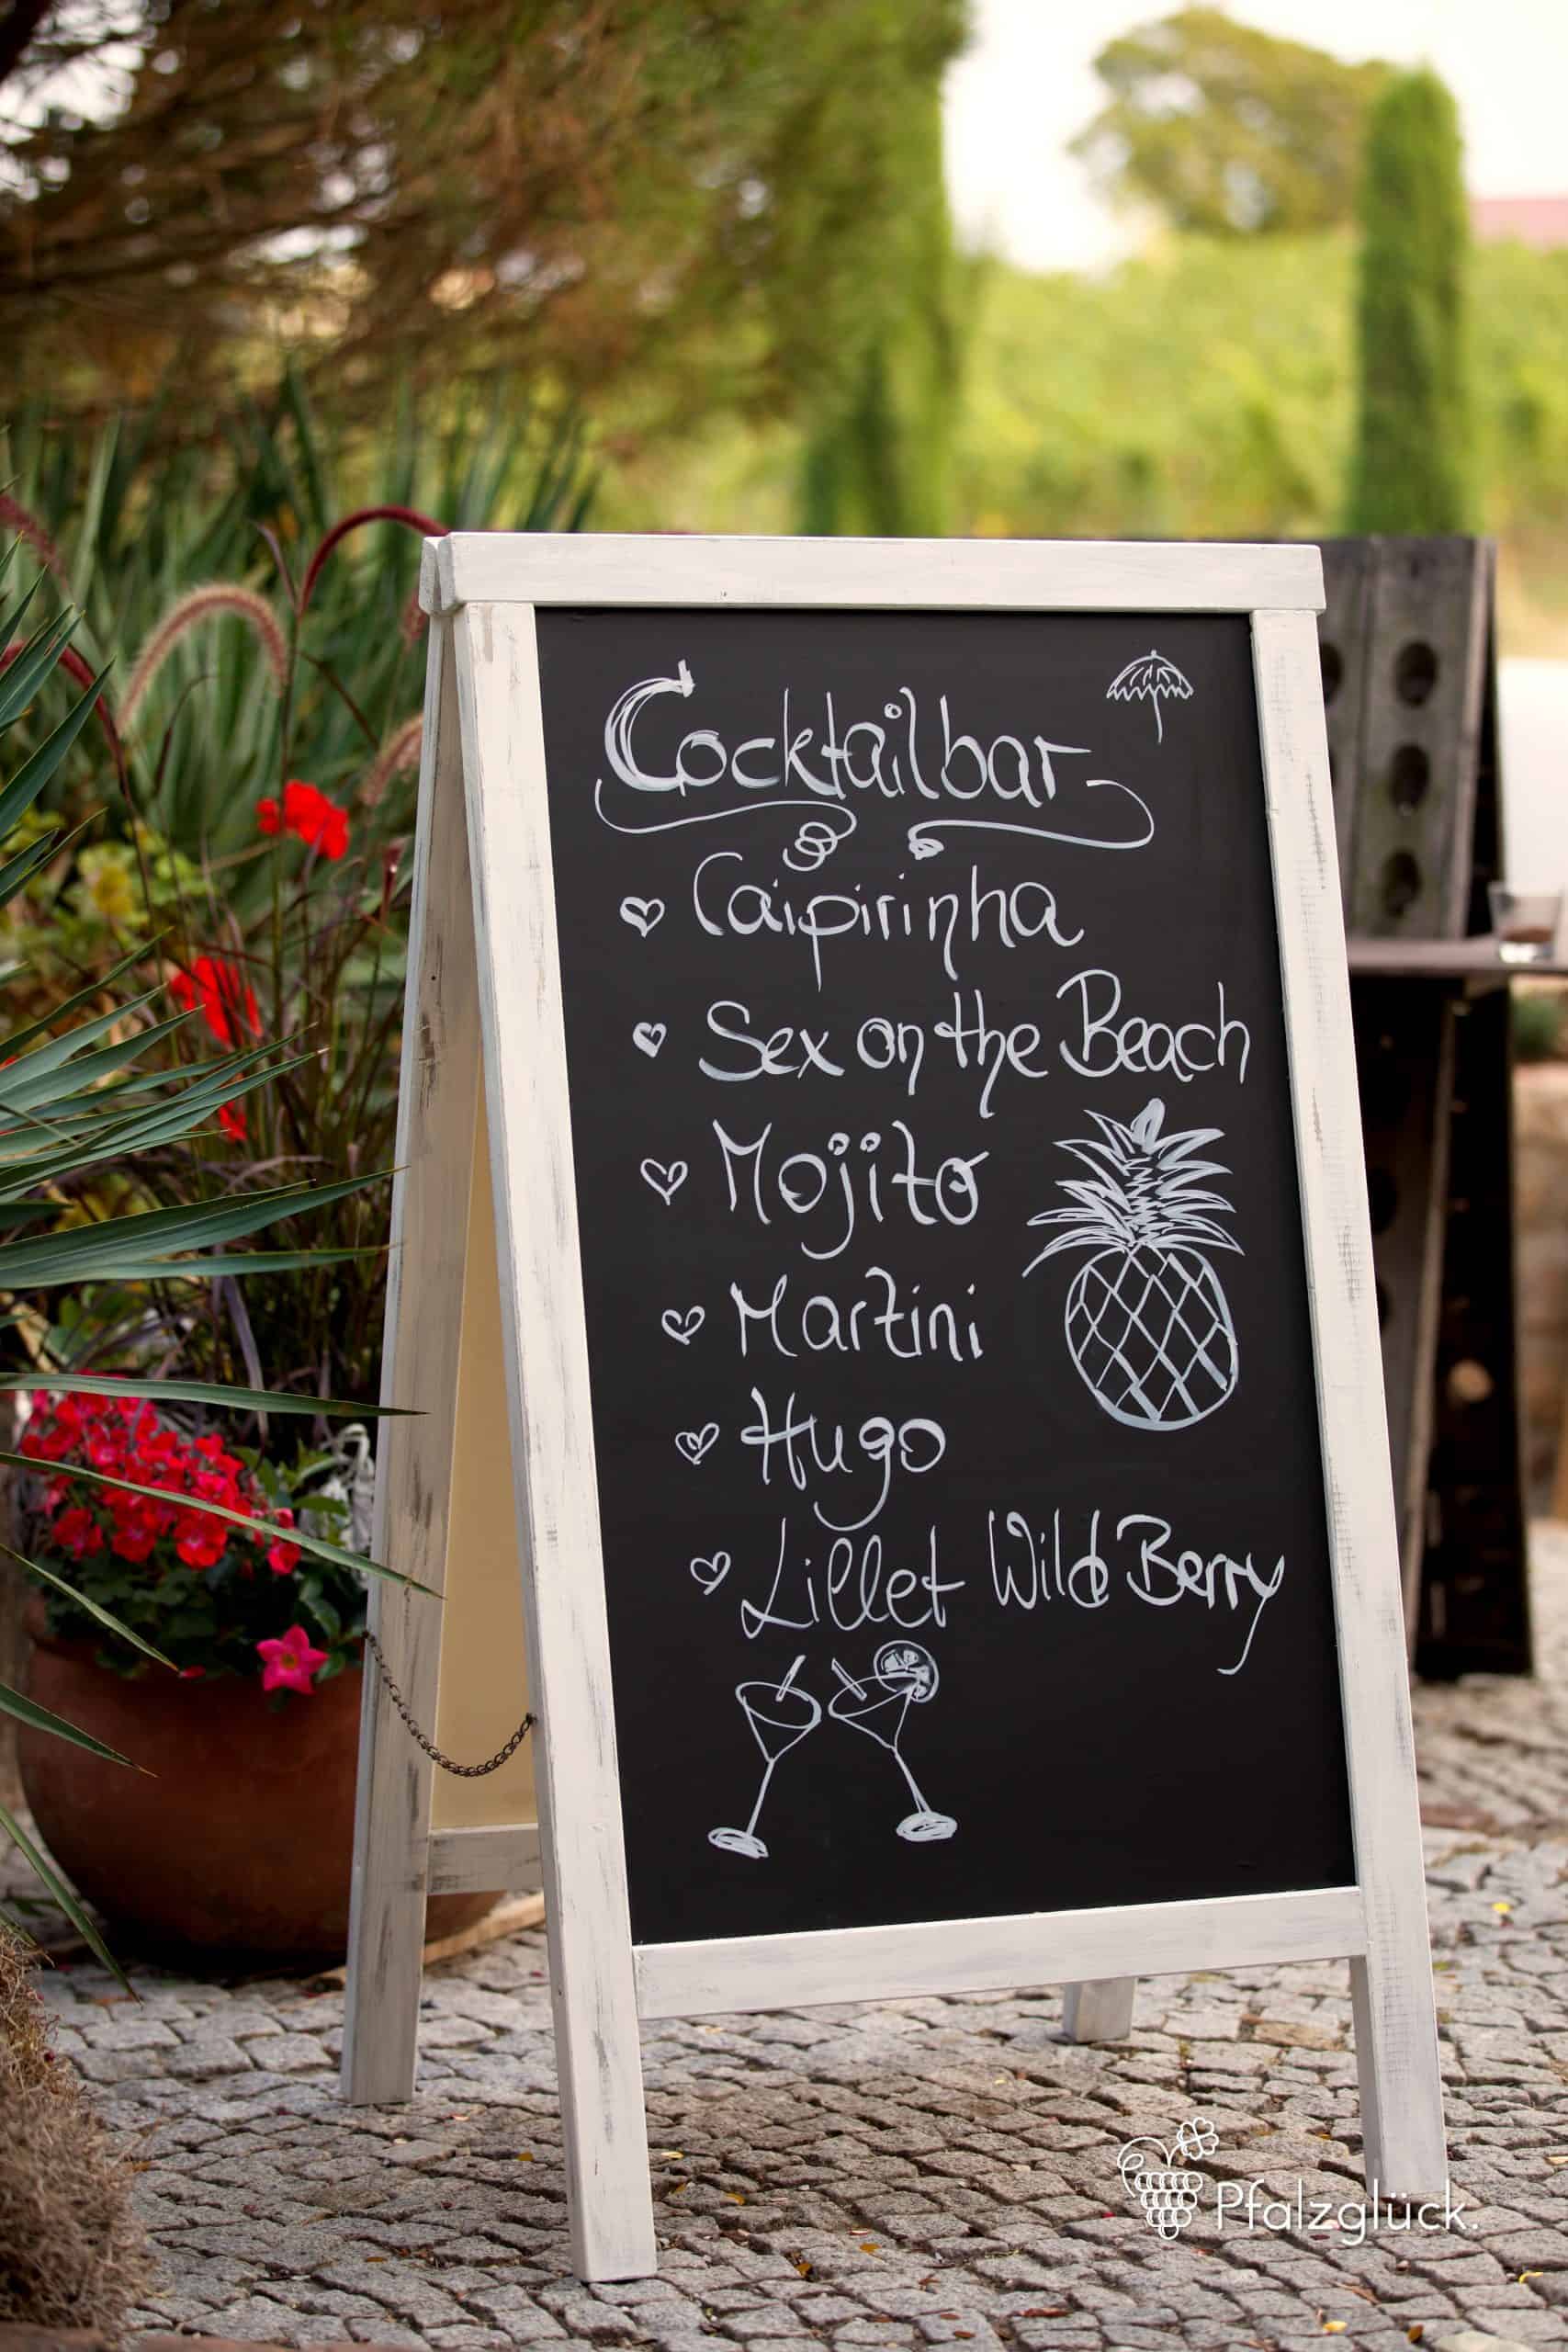 Cocktailbar
Caipirinha
Sex on the Beach
Mojito
Martini
Hugo
Lillet Wild Berry
Pfalzglück.